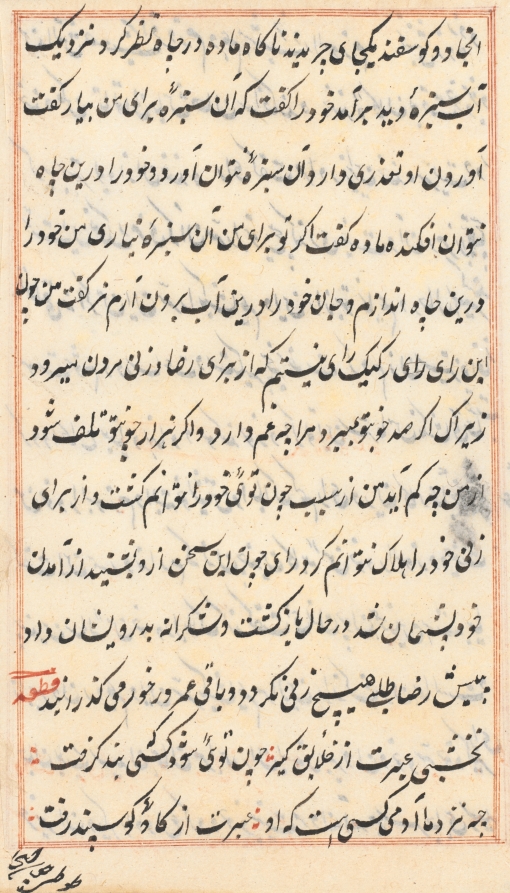 انجا دو کوسفند یکجای چریدند ناکاه ماده در چاه نظر کرد نزدیک
آب سبزهٔ دید برآمد خود را کفت که آن سبزه برای من بیار کفت
آوردن او تعذری دارد آن سبزه نتوان آورد و خود را درین چاه
نتوان افکند ماده کفت اکر تو برای من آن سبزه نیاری من خود را
درین چاه اندازم و جان خود را درین آب برون آرم نر کفت من چون
این رای رای رکیک رای نیستم که از برای رضا زنی مردن میرود
زیراک اکر صد چو تو بمیرد مرا چه غم دارد و اکر هزار چو تو تلف شود
از من چه کم آید من از سبب چون توئی خود را نتوانم کشت و از برای
زنی خود را هلاک نتوانم کرد رای چون این سخن ازو بشنید از آمدن
خود پشیمان شد در حال باز کشت و شکرانه بدرویشان داد
پیش رضا طلبی هیچ زنی نکردد و باقی عمر خود می کذرانید قطعه
نخشبی عبرت از خلایق کیر چون توئی سود کشی بند کرفت
چه نزد ما آدمی کسی است که او عبرت از کاؤ کوسپند رفت